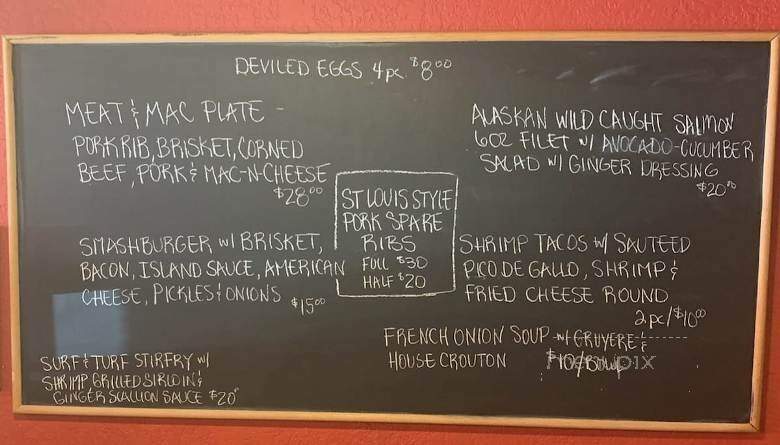 DEVILED EGGS 4pc $8⁰⁰
MEAT & MAC PLATE -
PORK RIB, BRISKET, CORNED
BEEF, PORK & MAC-N-CHEESE
$28⁰⁰
ALASKAN WILD CAUGHT SALMON
6OZ FILET w/ AVOCADO-CUCUMBER
SALAD w/ GINGER DRESSING
$20⁰⁰
ST LOUIS STYLE
PORK SPARE
RIBS
FULL $30
HALF $20
SMASHBURGER w/ BRISKET,
BACON, ISLAND SAUCE, AMERICAN
CHEESE, PICKLES & ONIONS $15⁰⁰
SHRIMP TACOS w/ SAUTEED
PICO DE GALLO, SHRIMP &
FRIED CHEESE ROUND
2pc/$10⁰⁰
FRENCH ONION SOUP w/ GRUYERE &
HOUSE CROUTON $10/Bowl
SURF & TURF STIRFRY w/
SHRIMP GRILLED SIRLOIN &
GINGER SCALLION SAUCE $20⁰